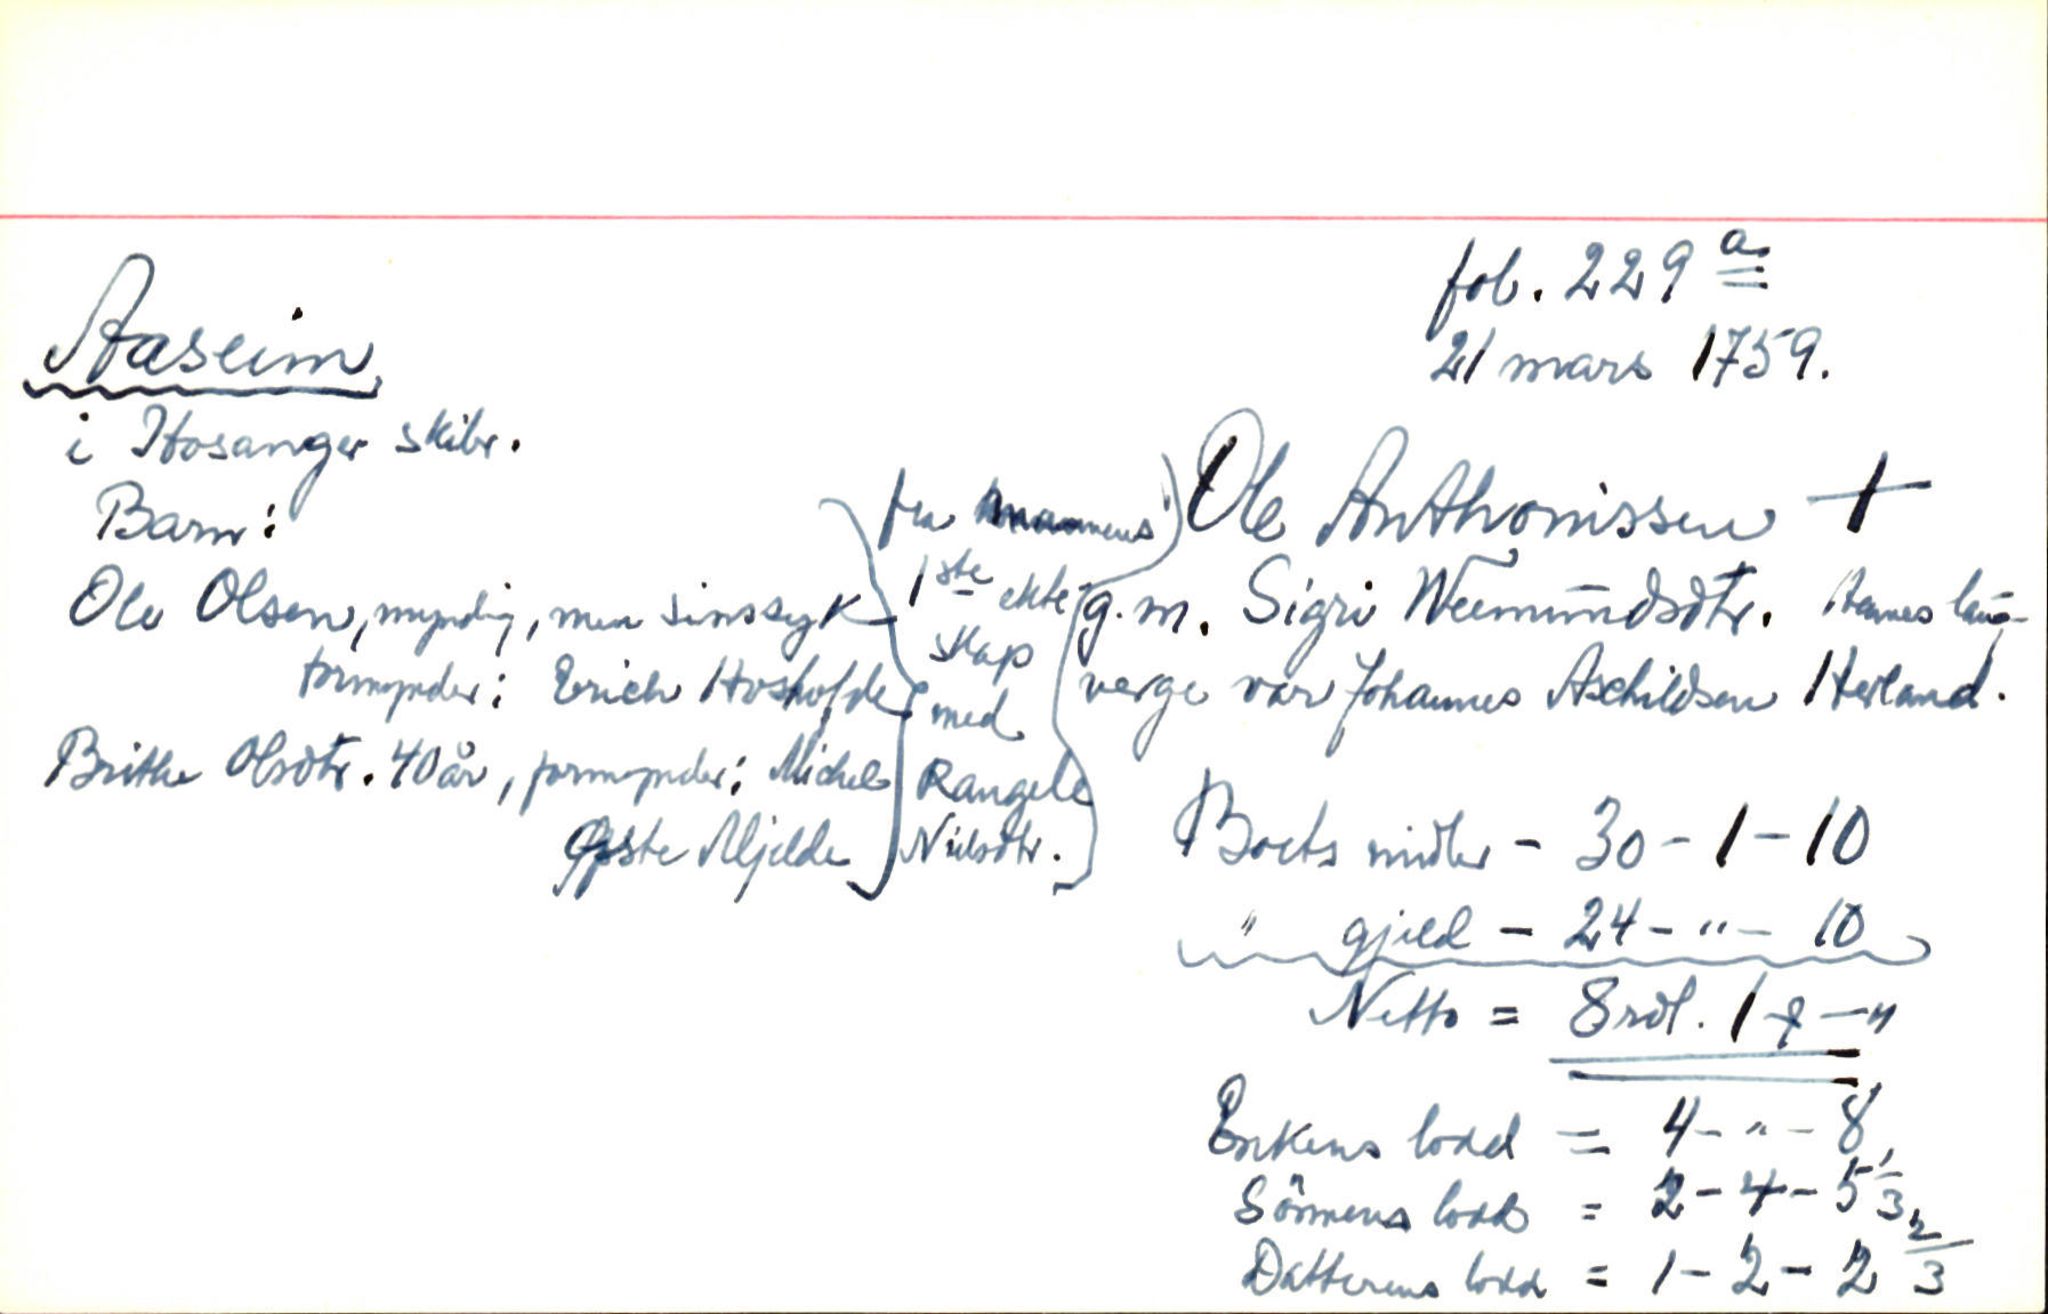 fol. 229 a
21 mars 1759.
Aaseim
i Hosanger skibr.
Barn:
Ole Olsen, myndig, men sinssyk
formynder: Erich Hoshofde
Brithe Olsdtr. 40 år, formynder: Michel
Øfste Mjelde
fra mannens
1ste ekte
skap
med
Rangele
Nielsdtr.
Ole Anthonissen +
g.m. Sigri Weemundsdtr. Hennes laug-
verge var Johannes Aschildsen Herland.
Boets midler - 30 - 1 - 10
" gjeld - 24 - " - 10
Netto = 8 rdl. 1 - "
Enkens lodd = 4 - " - 8
Sönnens lodd = 2 - 4 - 5 1/3
Datterens lodd = 1 - 2 - 2 2/3